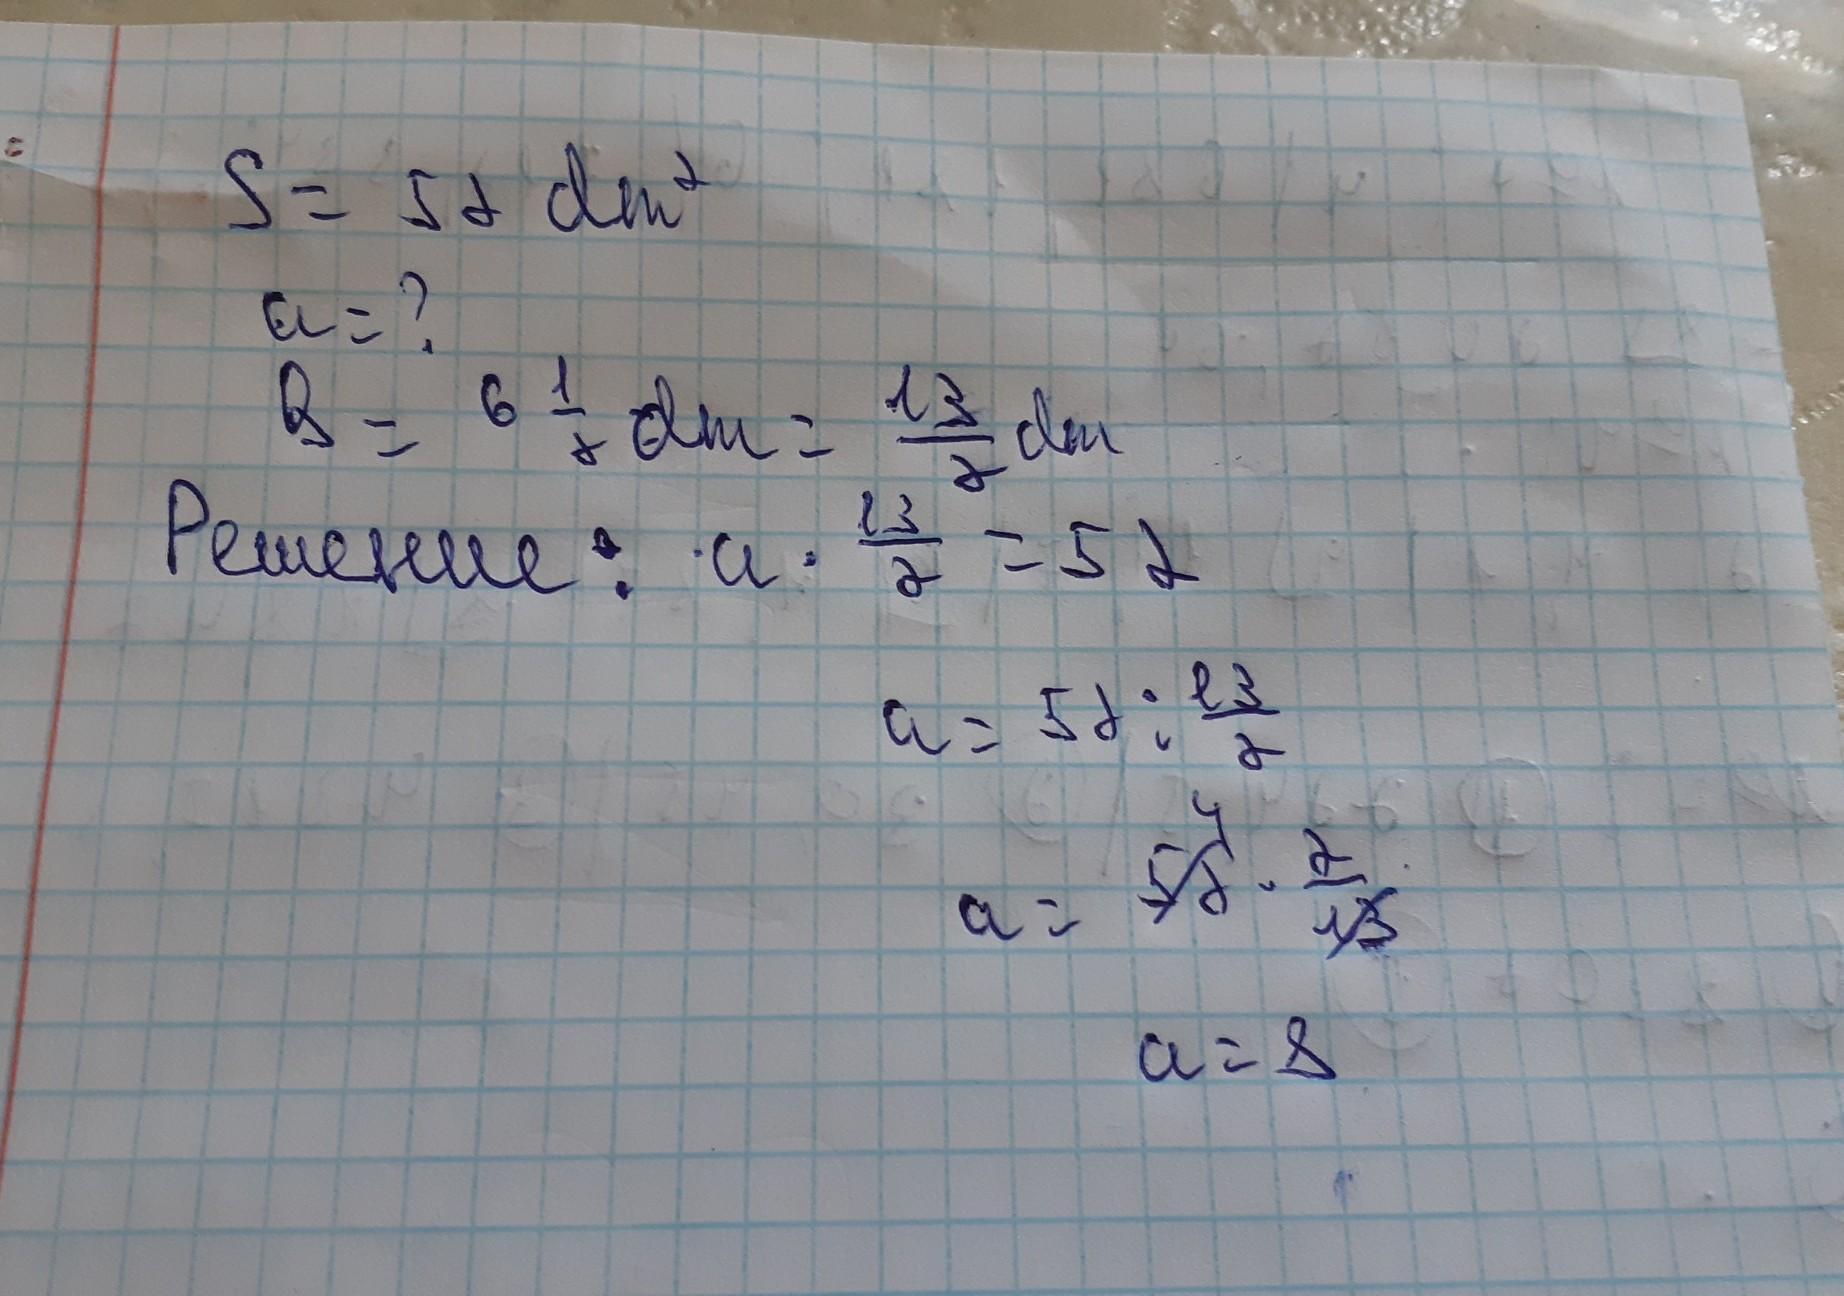 S = 52 dm²
a = ?
B = 6 1/2 dm = 13/2 dm
Решение : a · 13/2 = 52
a = 52 : 13/2
a = 52 4 · 2/13
a = 8